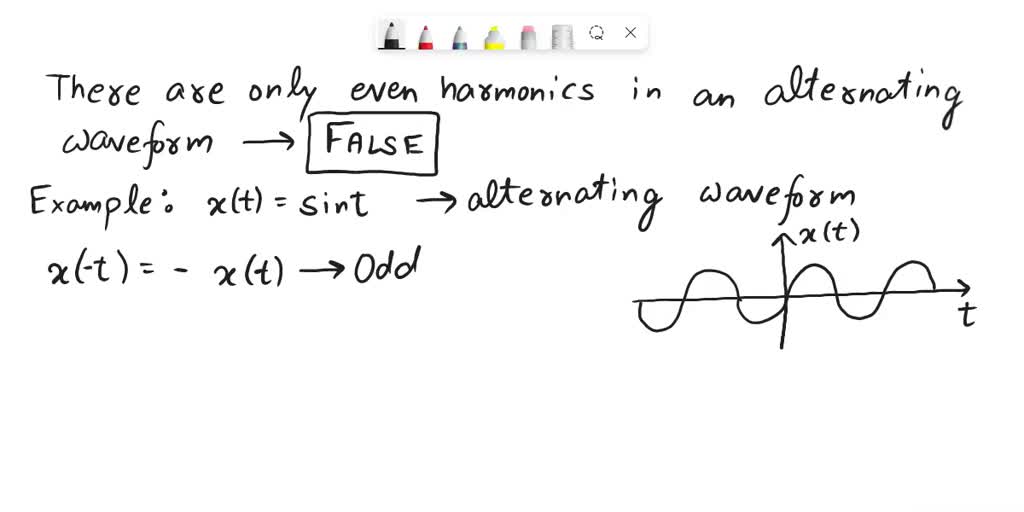 There are only even harmonics in an alternating
waveform → FALSE
Example: x(t) = sint → alternating waveform
x(t)
x(-t) = - x(t) → Odd
t